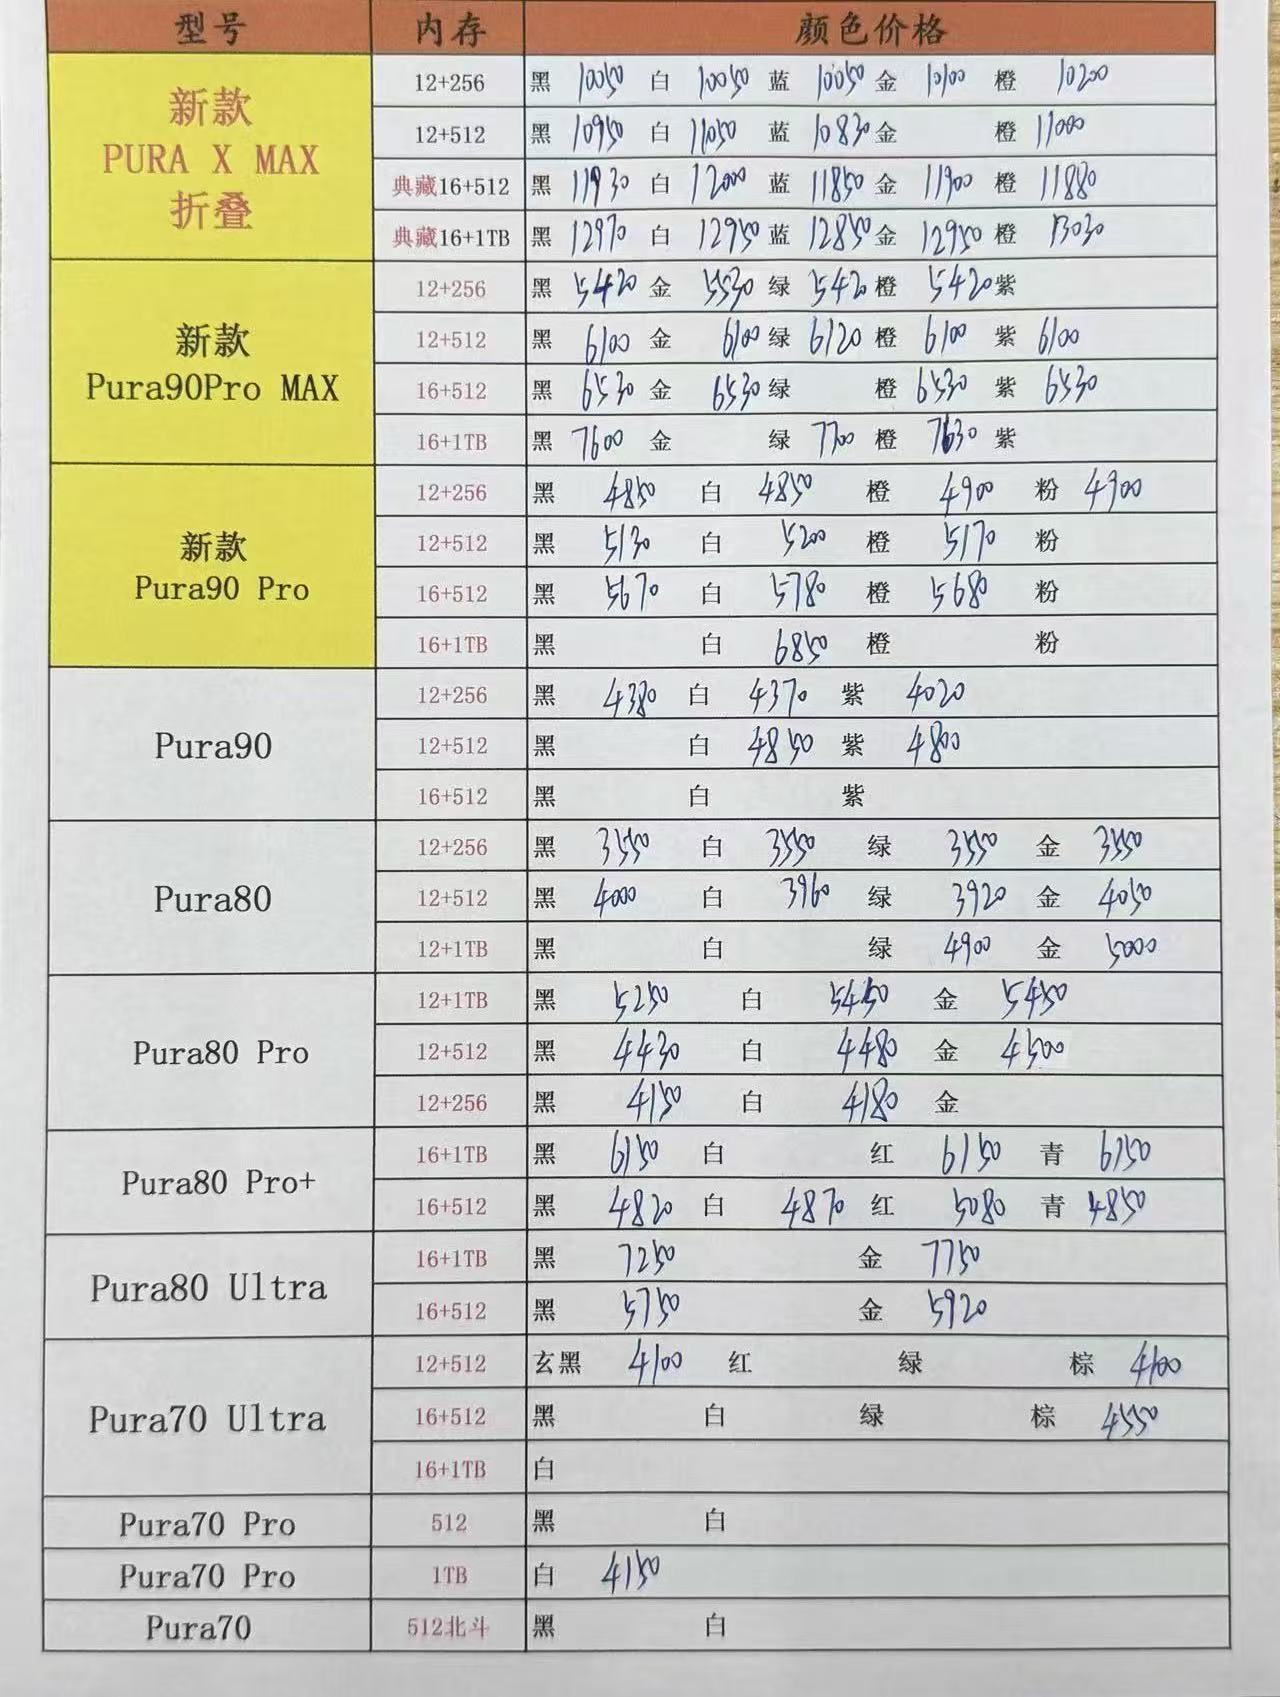 型号 内存 颜色价格
新款 PURA X MAX 折叠
12+256 黑 10050 白 10050 蓝 10050 金 10100 橙 10200
12+512 黑 10950 白 11050 蓝 10830 金 橙 11000
典藏16+512 黑 11930 白 12000 蓝 11850 金 11900 橙 11880
典藏16+1TB 黑 12970 白 12950 蓝 12850 金 12950 橙 13030
新款 Pura90Pro MAX
12+256 黑 5420 金 5530 绿 5420 橙 5420 紫
12+512 黑 6100 金 6100 绿 6120 橙 6100 紫 6100
16+512 黑 6530 金 6530 绿 橙 6530 紫 6530
16+1TB 黑 7600 金 绿 7700 橙 7630 紫
新款 Pura90 Pro
12+256 黑 4850 白 4850 橙 4900 粉 4900
12+512 黑 5130 白 5200 橙 5170 粉
16+512 黑 5670 白 5780 橙 5680 粉
16+1TB 黑 白 6850 橙 粉
Pura90
12+256 黑 4380 白 4370 紫 4020
12+512 黑 白 4850 紫 4800
16+512 黑 白 紫
Pura80
12+256 黑 3550 白 3550 绿 3550 金 3550
12+512 黑 4000 白 3960 绿 3920 金 4050
12+1TB 黑 白 绿 4900 金 5000
Pura80 Pro
12+1TB 黑 5250 白 5450 金 5450
12+512 黑 4430 白 4480 金 4500
12+256 黑 4150 白 4180 金
Pura80 Pro+
16+1TB 黑 6150 白 红 6150 青 6150
16+512 黑 4820 白 4870 红 5080 青 4850
Pura80 Ultra
16+1TB 黑 7250 金 7750
16+512 黑 5750 金 5920
Pura70 Ultra
12+512 玄黑 4100 红 绿 棕 4100
16+512 黑 白 绿 棕 4550
16+1TB 白
Pura70 Pro 512 黑 白
Pura70 Pro 1TB 白 4150
Pura70 512北斗 黑 白